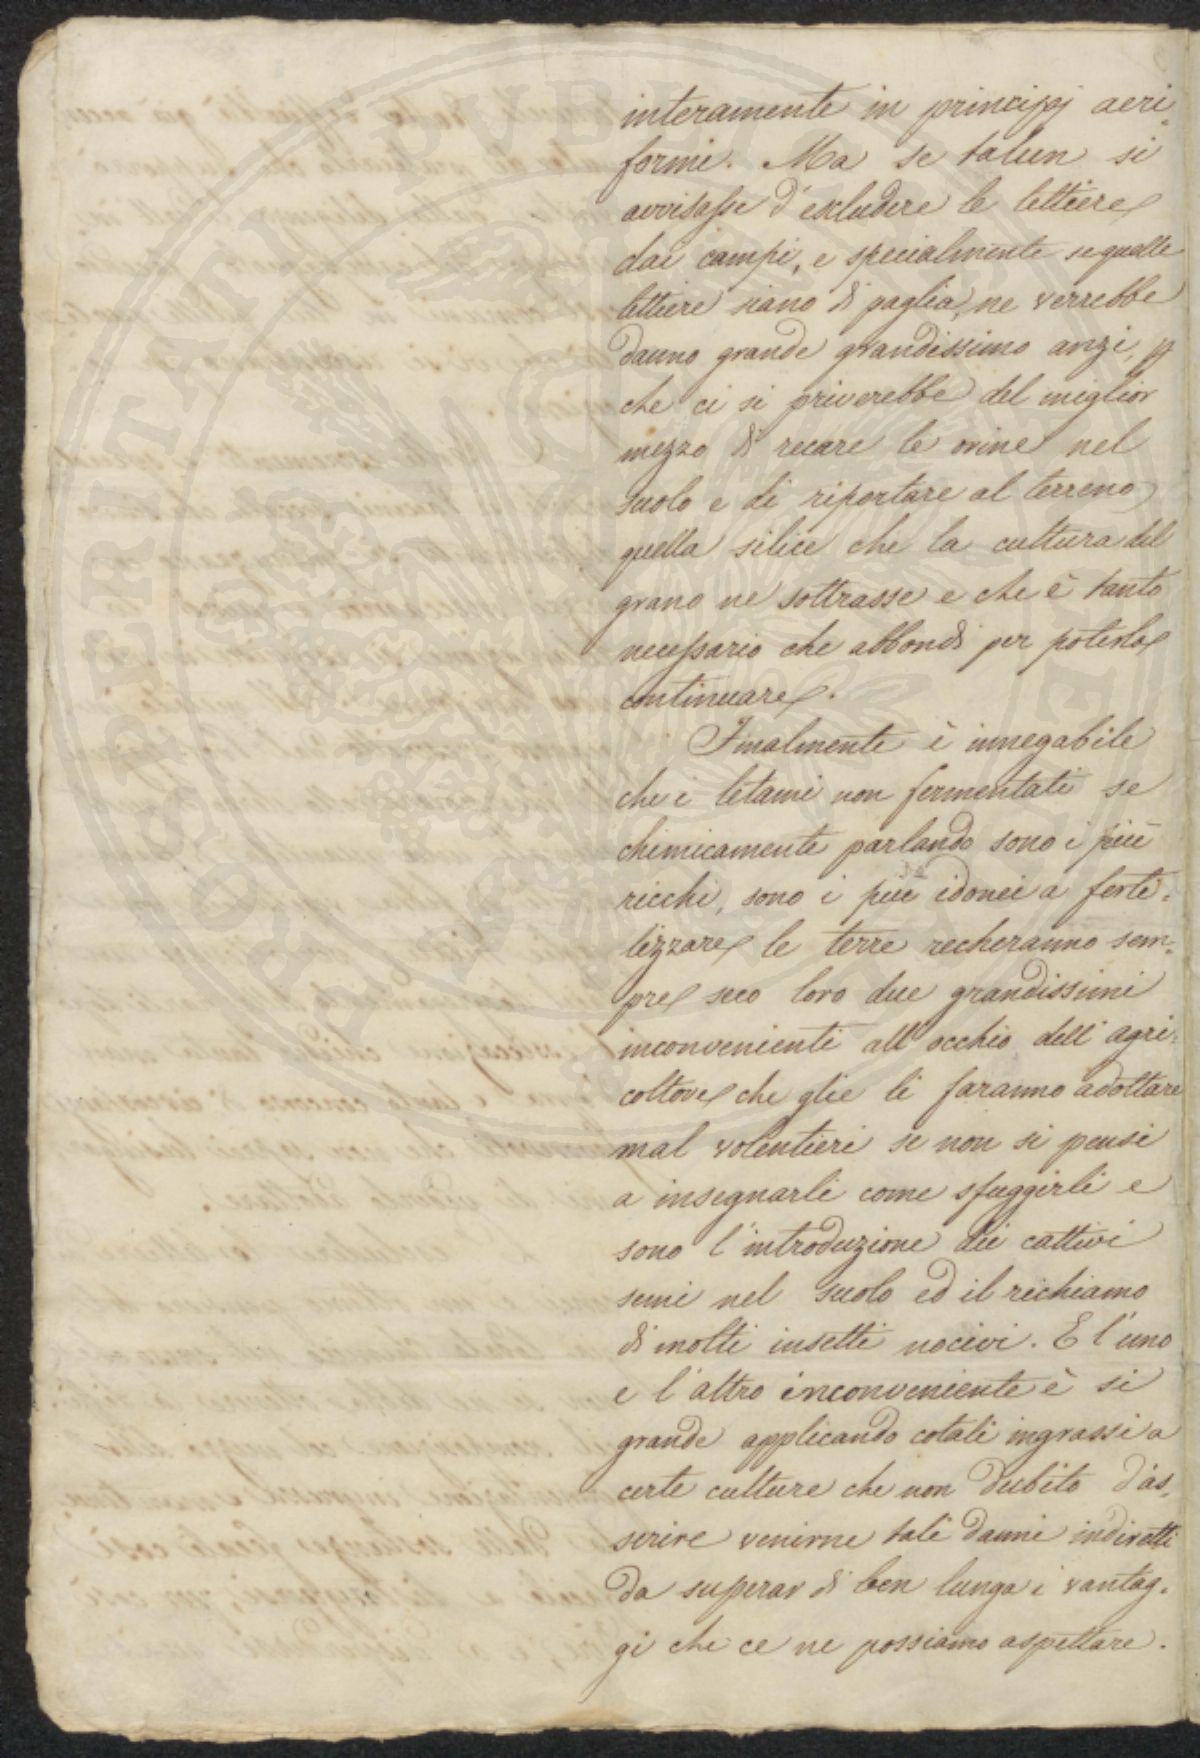 interamente in principj aeri-
formi. Ma se talun si
avvisasse d'escludere le lettiere
dai campi, e specialmente se quelle
lettiere siano di paglia, ne verrebbe
danno grande grandissimo anzi, p
che ci si priverebbe del miglior
mezzo di recare le orine nel
suolo e di riportare al terreno
quella silice che la cultura del
grano ne sottrasse e che è tanto
necessario che abbondi per poterla
continuare.
Finalmente è innegabile
che i letami non fermentati se
chimicamente parlando sono i più
ricchi, sono i più idonei a ferti-
lizzare le terre recheranno sem-
pre seco loro due grandissimi
inconvenienti all'occhio dell'agri-
coltore che glie li faranno adottare
mal volentieri se non si pensi
a insegnarli come sfuggirli e
sono l'introduzione dei cattivi
semi nel suolo ed il richiamo
di molti insetti nocivi. E l'uno
e l'altro inconveniente è si
grande applicando cotali ingrassi a
certe culture che non dubito d'as-
serire venirne tali danni indiretti
da superar di ben lunga i vantag-
gi che ce ne possiamo aspettare.